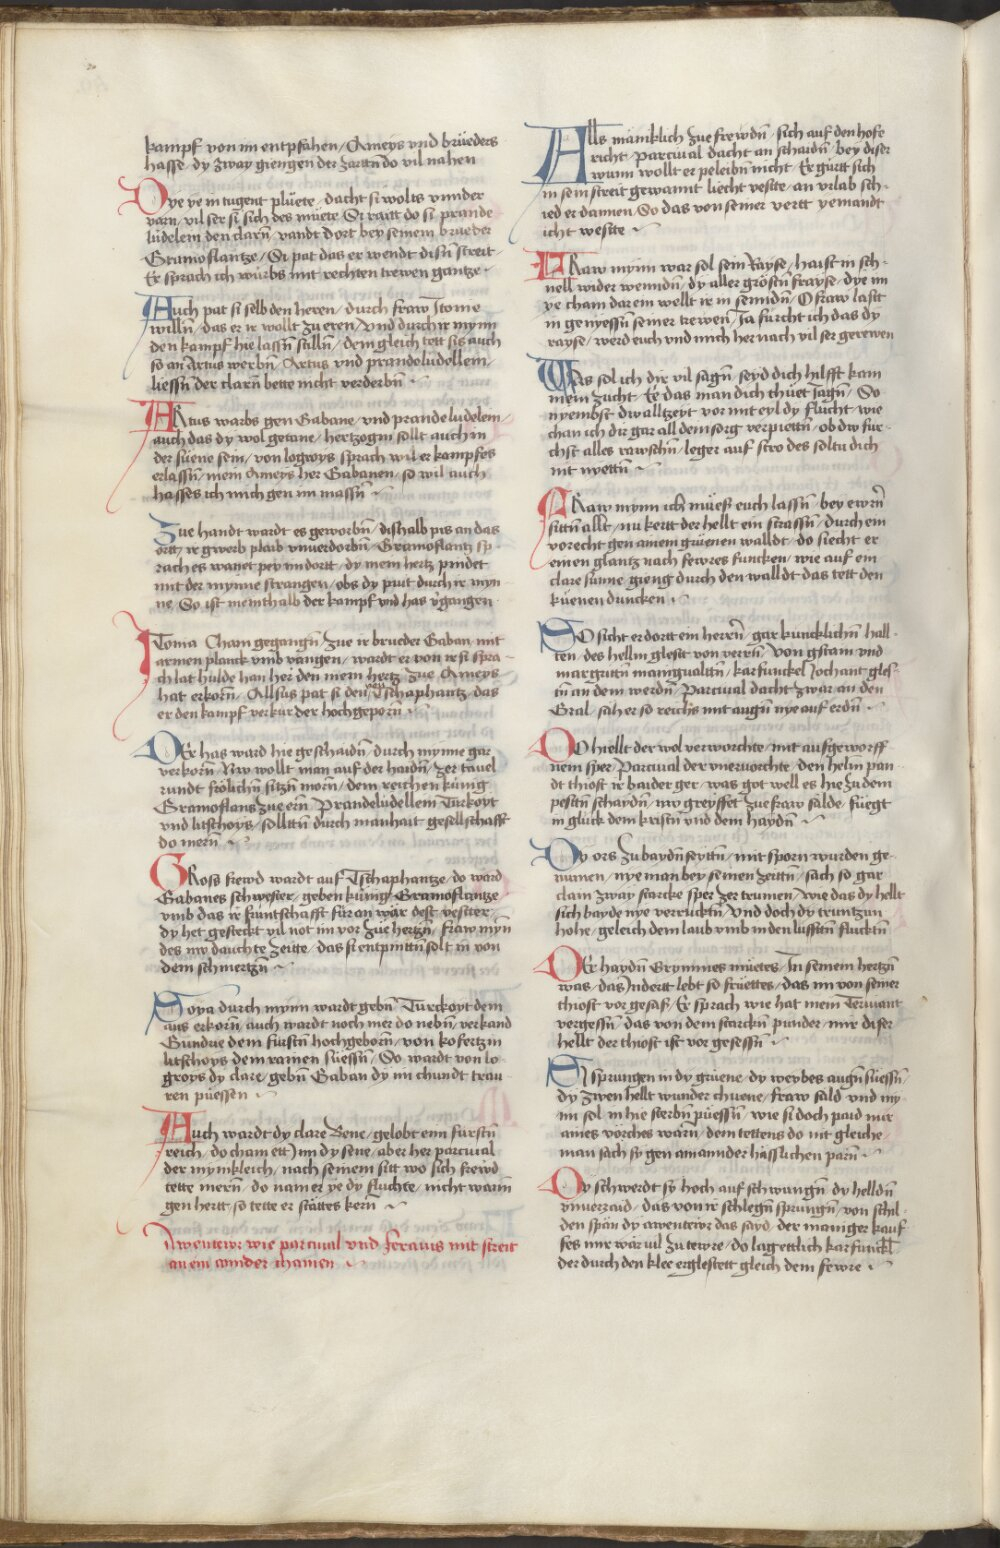 kampf von im entpfahen / Ameys vnd brüeders
hasse / dy zway giengen der zartn̄ do vil nahen
Dye ye in tugent plüete / dacht si wolts vnnder
varn / vil ser si sich des müete Si vantt do si prande
lüdelem den clarn̄ / vandt dort bey seinem brueder
Gramoflantze / Si pat das er wendt disn̄ streit
Er sprach ich würbs mit rechten trewen gantze
Auch pat si selb den heren / durch fraw Itonie
willn̄ / das er ir wollt zu eren / vnd durch ir mynn
den kampf hie lassn̄ stilln̄ / dem gleich tett sis auch
so an Artus werbn̄ Artus vnd prandelüdellem
liessn̄ der clarn̄ bette nicht verderbn̄
ARtus warbs gen Gabane / vnd prandelüdelem
auch das dy wol getane / hertzogin sollt auch in
der süene sein / von logroys sprach wil er kampfes
erlassn̄ / mein Ameys her Gabanen / so wil auch
hasses ich mich gen im massn̄
Zue handt wardt es geworbn̄ / dishalb pis an das
ortt / ir gwerb plaib vnuerdorbn̄ / Gramoflantz sp
rach es watiet pey im dortt / dy mein hertz pindet
mit der mynne strangen / obs dy puit durch ir myn
ne So ist meinthalb der kampf vnd has vgangen
ITonia Cham gegangn̄ zue ir brueder Gaban / mit
armen planck vmb vangen / wardt er von ir si spra
ch lat hulde han her den mein hertz zue Ameys
hat erkorn̄ / Allsus pat si den Tschaphantz / das
er den kampf verkür der hochgeporn̄
DEr has ward hie geschaidn̄ / durch mynne gar
verkorn̄ / Nw wollt man auf der haidn̄ / zer tauel
rundt frölichn̄ sitzn̄ morn̄ / dem reichen künig
Gramoflans zue ern̄ Prandelüdellem Turkoyt
vnd litschoys / solltn̄ durch manhait gesellschafft
do mern̄
GRoss frewd wardt auf Tschaphantze / do ward
Gabanes schwester / geben künig Gramoflantze
vmb das ir fruntschafft füran wär dest vester /
dy het gesteckt vil not im vor zue hertzn̄ / fraw myn
des nw dauchte zeitte / das si entpinttn̄ solt in von
dem schmertzn̄
Soya durch mynn wardt gebn̄ Turckoyt dem
aus erkorn̄ / auch wardt noch mer do nebn̄ / verkand
Gundrie dem fürstn̄ hochgeborn̄ / von kofertzin
litschoys dem rainen süessn̄ / So wardt von lo
groys dy clare / gebn̄ Gaban dy im chundt trau
ren püessen
Auch wardt dy clare Bene / gelobt eim fürstn̄
reich / do cham ett im dy sene / aber her parcival
der mynkleich / nach seinem sitt wo sich frewd
tette mern̄ / do nam er ye dy fluchte / nicht warin
gen hertt / so tette er stättes kern̄
Awentewr wie parcival vnd ferauis mit streit
an ein wnider chamen
Alls mäniklich zue frewdn̄ / sich auf den hofe
richt / Parcival dacht an schaidn̄ / bey diser
wunn wollt er peleibn̄ nicht / Er gürtt sich
in sein streit gewannt liecht veste / an vrlab sch
ied er dannen / So das von seiner vertt yemandt
icht weste
FRaw mynn war sol sein Rayse / haist in sch
nell wider wenndn̄ / dy aller gröstn̄ frayse / dye im
ye cham darein wellt ir in senndn̄ / O fraw lasst
in genyessn̄ seiner trewen / Ja fürcht ich das dy
rayse / werd euch vnd mich hernach vil ser gerewen
Was sol ich dir vil sagn̄ / seyd dich hilfft kain
mein zucht / Ee das man dich thüet Jagn̄ / So
nyembst dw alltzeyt vor mit eyl dy flucht / wie
chan ich dir gar all dein sorg verpiettn̄ / ob dw für
chst alles rawschn̄ / leger auf stro des soltu dich
nit nyettn̄
FRaw mynn ich müess euch lassn̄ / bey ewrn̄
sittn̄ allt / nu kertt der hellt ein strassn̄ / durch ein
vorecht gen ainem grüenen walldt / do siecht er
einen glantz nach fewres funcken / wie auf ein
clare sunne / gieng durch den walldt das tett den
küenen duncken
SO sicht er dortt ein herrn̄ / gar kuncklichn̄ hall
ten / des hellm glestt von verrn̄ / von gstain vnd
margrittn̄ manigualltn̄ / karfunckel Jochant gles
tn̄ an dem werdn̄ / Parcival dacht zwar an den
Gral / sah er so reichs mit augn̄ nye auf erdn̄
DO hiellt der wol verworchte / mit aufgeworff
nem sper / Parcival der vneruorchte / den helm pan
dt thiost ir baider ger / was got well es hie zu dem
pestn̄ schaydn̄ / nw greyffet zue fraw sälde / füegt
in glück dem kristn̄ vnd dem haydn̄
Dy ors zu baydn̄ seyttn̄ / mit sporn wurden ge
numen / nye man bey seinen zeittn̄ / sach so gar
clain zway starcke sper zer trumen / wie das dy hellt
sich bayde nye verrucktn̄ / Vnd doch dy truntzun
hohe / geleich dem laub vmb in den lüfftn̄ flucktn̄
DEr haydn̄ Grymmes müetes / In seinem hertzn̄
was / das nidertt lebt so früettes / das im von seiner
thiost vor gesass / Er sprach wie hat mein Teruiant
vergessn̄ / das von dem starckn̄ punder / mir diser
hellt der thiost ist vor gesessn̄
Sy sprungen in dy grüene / dy weybes augn̄ süessn̄
dy zwen hellt wunder chuene / fraw säld vnd my
nn sol in hie sterbn̄ püessn̄ / wie si doch paid nur
aines vörches wärn̄ / dem tettens do nit gleiche
man sach sy gen ainannder hässlichen parn̄
Dy schwerdt sy hoch auf schwangn̄ / dy helldn̄
vnuerzaid / das von ir schlegn̄ sprungn̄ / von schil
den spän dy awentewr das sayd / der maniger kauf
fes mir wär vil zu tewre / do lag ettlich karfunckl̄
der durch den klee erglestett gleich dem fewre